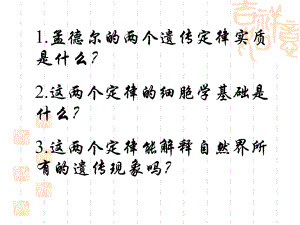 1.孟德尔的两个遗传定律实质
是什么?
2.这两个定律的细胞学基础是
什么?
3.这两个定律能解释自然界所
有的遗传现象吗?
吉祥如意